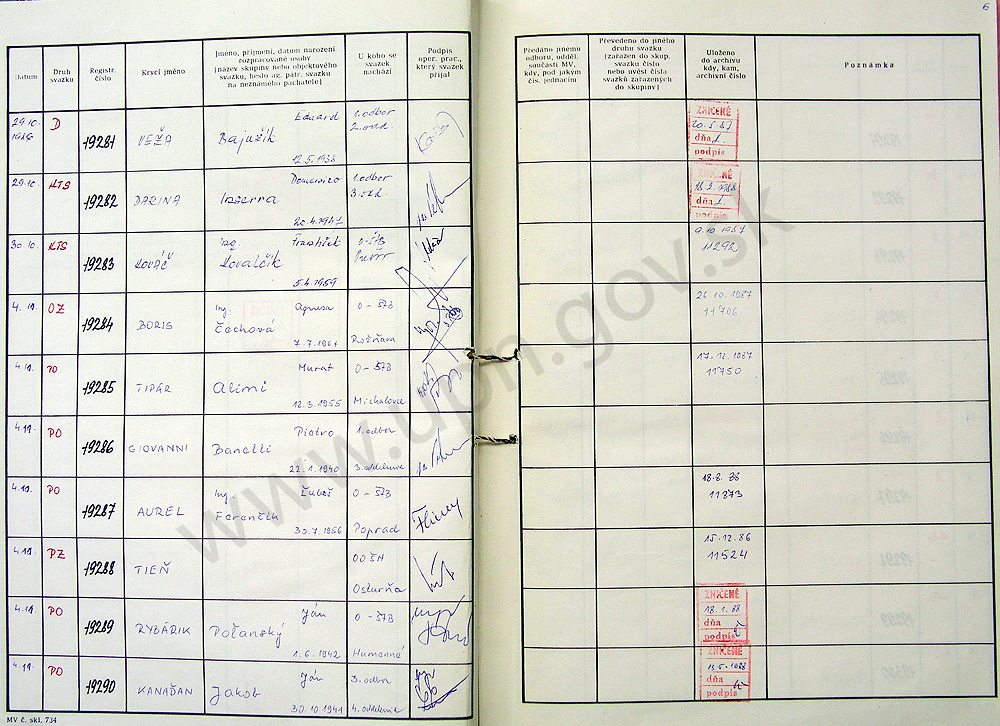 6
Datum
Druh svazku
Registr. číslo
Krycí jméno
Jméno, příjmení, datum narození rozpracované osoby
[název skupiny nebo objektového svazku, heslo ag. pátr. svazku na neznámého pachatele]
U koho se svazek nachází
Podpis oper. prac., který svazek přijal
Předáno jinému odboru, odděl. součásti MV, kdy, pod jakým čís. jednacím
Převedeno do jiného druhu svazku [zařazen do skup. svazku číslo nebo uvést čísla svazků zařazených do skupiny]
Uloženo do archivu kdy, kam, archivní číslo
Poznámka
29.10. 1986 D 19281 VEŽA Bajužík Eduard 12.5.1938 1.odbor 2.odd.
ZNIČENÉ 20.5.87 dňa podpis
29.10. KTS 19282 DARINA Inserra Domenico 1.odbor 3.odd.
ZNIČENÉ dňa podpis
30.10. KTS 19283 KOVÁČ Ing. Kovalčík František 5.4.1959 O-ŠTB
9.10.1987 11292
4.11. OZ 19284 BORIS Ing. Čechová Agnesa O-ŠTB Rožňava
26.10.1987 11706
4.11. PO 19285 TIPÁR Alimi Murat 12.3.1955 O-ŠTB Michalovce
17.12.1987 11750
4.11. PO 19286 GIOVANNI Banelli Pietro 22.1.1940 1.odbor 3.oddelenie
4.11. PO 19287 AUREL Ing. Ferenčík Ľuboš 30.7.1956 O-ŠTB Poprad
11873
4.11. PZ 19288 TIEŇ OOŠH Osturňa
15.12.86 11524
4.11. PO 19289 RYBÁRIK Počanský Ján 1.6.1942 O-ŠTB Humenné
ZNIČENÉ 18.1.88 dňa podpis
4.11. PO 19290 KANAĎAN Jakob Ján 30.10.1941 3.odbor 4.oddelenie
ZNIČENÉ dňa podpis
MV č. skl. 734
www.upn.gov.sk